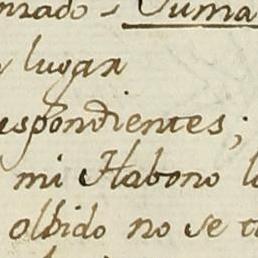 nzado - Suma
lugar
uspondientes;
mi Habono l
olbido no se